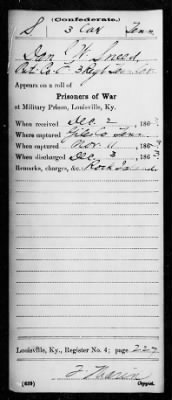 (Confederate.)
S 3 Cav Tenn
Dan W. Sneed
Pvt. Co. 3 Regt Tenn Cav
Appears on a roll of
Prisoners of War
at Military Prison, Louisville, Ky.
When received Dec. 2, 1863
Where captured Giles Co Tenn
When captured Nov. 11, 1863
When discharged Dec. 3, 1863
Remarks, charges, &c. Rock Island
Louisville, Ky., Register No. 4; page 227
(639) Copyist.